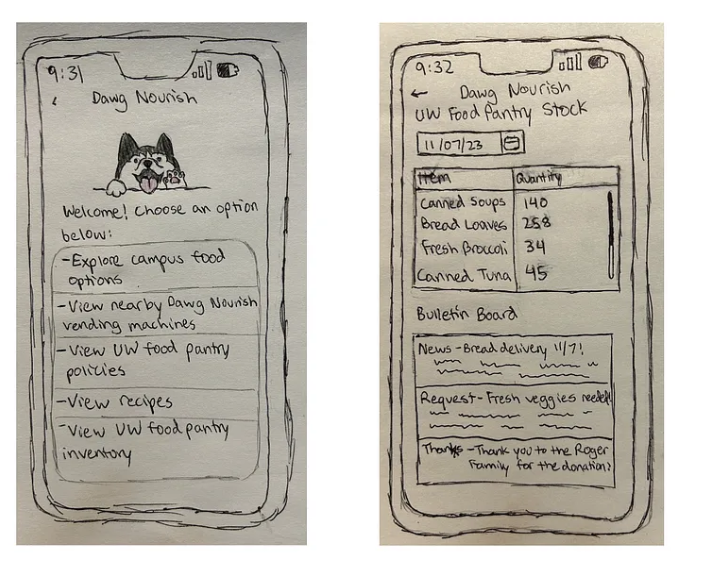 9:31
Dawg Nourish
Welcome! Choose an option
below:
-Explore campus food
options
-View nearby Dawg Nourish
vending machines
-View UW food pantry
policies
-View recipes
-View UW food pantry
inventory
9:32
←
Dawg Nourish
UW Food Pantry Stock
11/07/23
Item Quantity
Canned Soups 140
Bread Loaves 258
Fresh Broccoli 34
Canned Tuna 45
Bulletin Board
News -Bread delivery 11/7!
Request- Fresh veggies needed!
Thanks -Thank you to the Roger
Family for the donation!